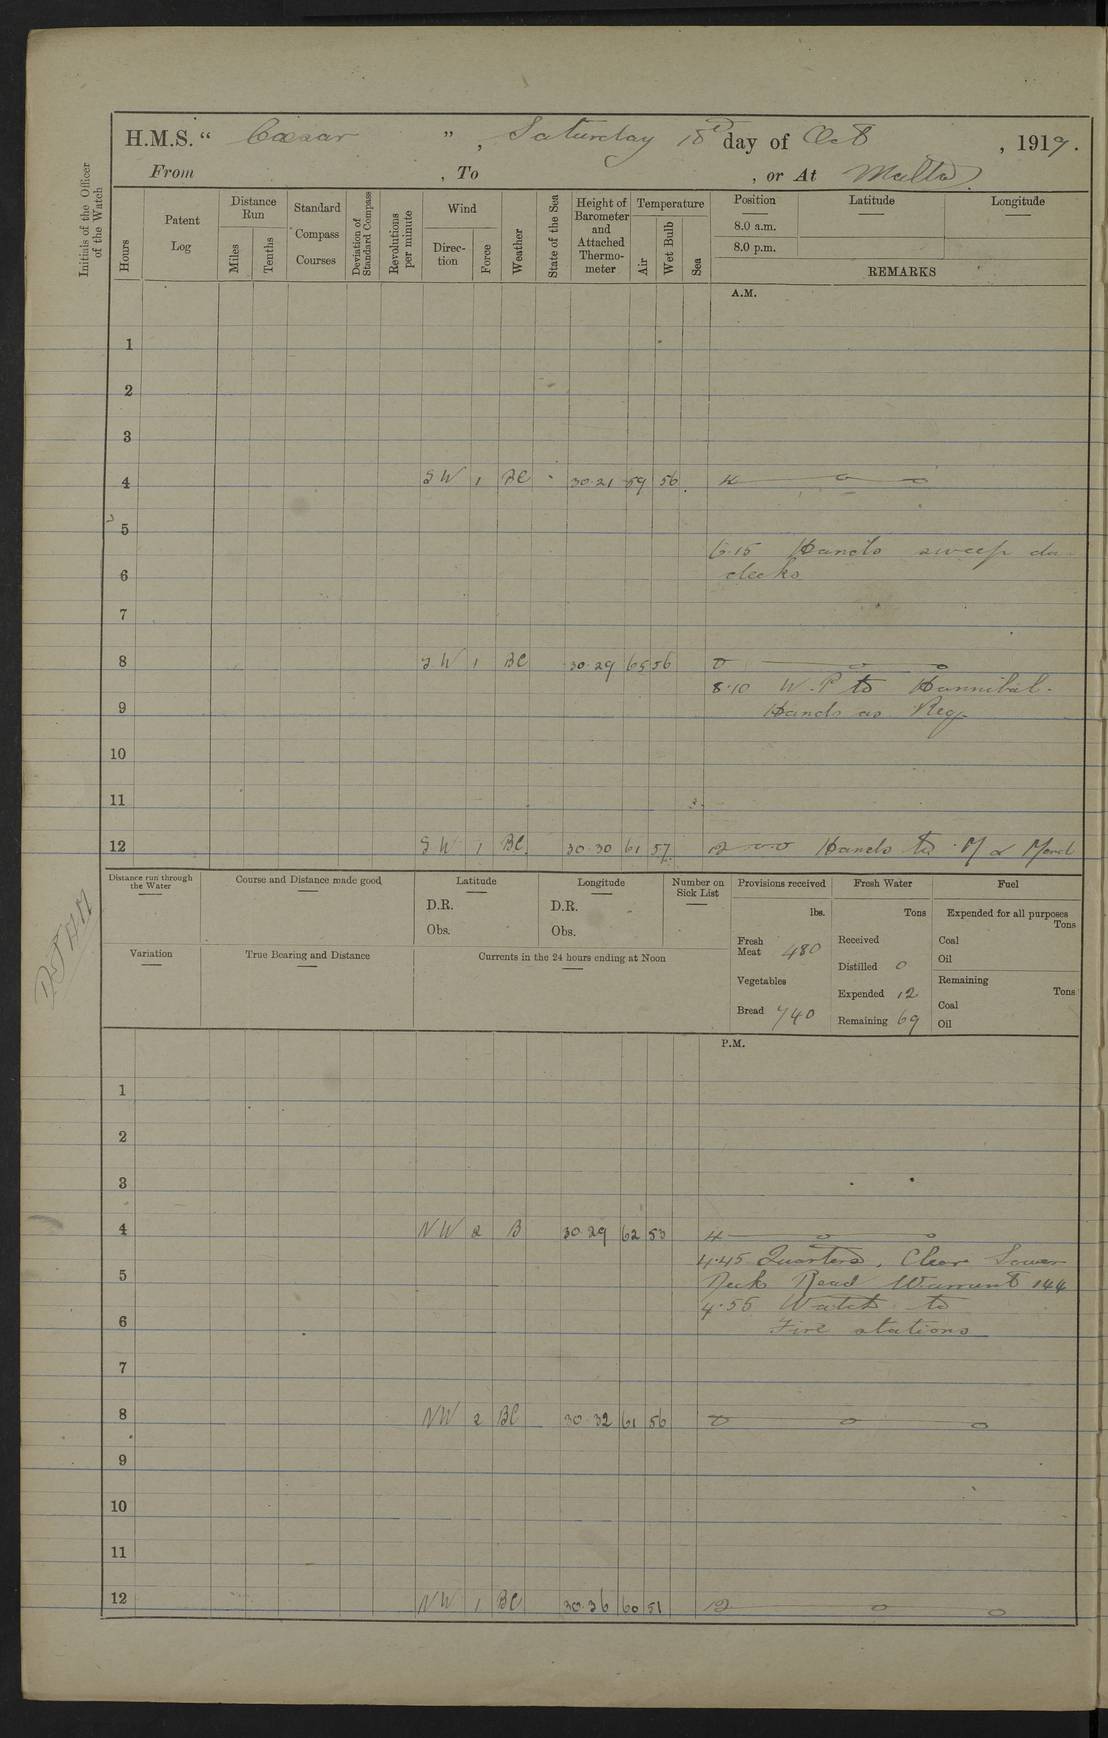 H.M.S. “ Caesar ” , Saturday 18th day of Oct , 1919.
From , To , or At Malta.
Initials of the Officer of the Watch
Hours
Patent Log
Distance Run
Miles
Tenths
Standard Compass Courses
Deviation of Standard Compass
Revolutions per minute
Wind
Direction
Force
Weather
State of the Sea
Height of Barometer and Attached Thermometer
Temperature
Air
Wet Bulb
Sea
Position Latitude Longitude
8.0 a.m.
8.0 p.m.
REMARKS
A.M.
1
2
3
4 SW 1 BC 30.21 59 56 4
5
6.15 Hands sweep
6 decks
7
8 SW 1 BC 30.29 65 56 8
8.10 W.P to Hannibal.
9 Hands as Req
10
11
12 SW 1 BC 30.30 61 57 12 Hands to M &
Distance run through the Water
Course and Distance made good
Latitude
D.R.
Obs.
Longitude
D.R.
Obs.
Number on Sick List
Provisions received
lbs.
Fresh Meat 480
Vegetables
Bread 740
Fresh Water
Tons
Received
Distilled 0
Expended 12
Remaining 69
Fuel
Expended for all purposes
Tons
Coal
Oil
Remaining
Tons
Coal
Oil
Variation
True Bearing and Distance
Currents in the 24 hours ending at Noon
P.M.
1
2
3
4 NW 2 B 30.29 62 53 4
4.45 Quarters, Clear Lower
5 Deck Read Warrant 144
4.55 Watch to
6 Fire stations
7
8 NW 2 BC 30.32 61 56 8
9
10
11
12 NW 1 BC 30.36 60 51 12